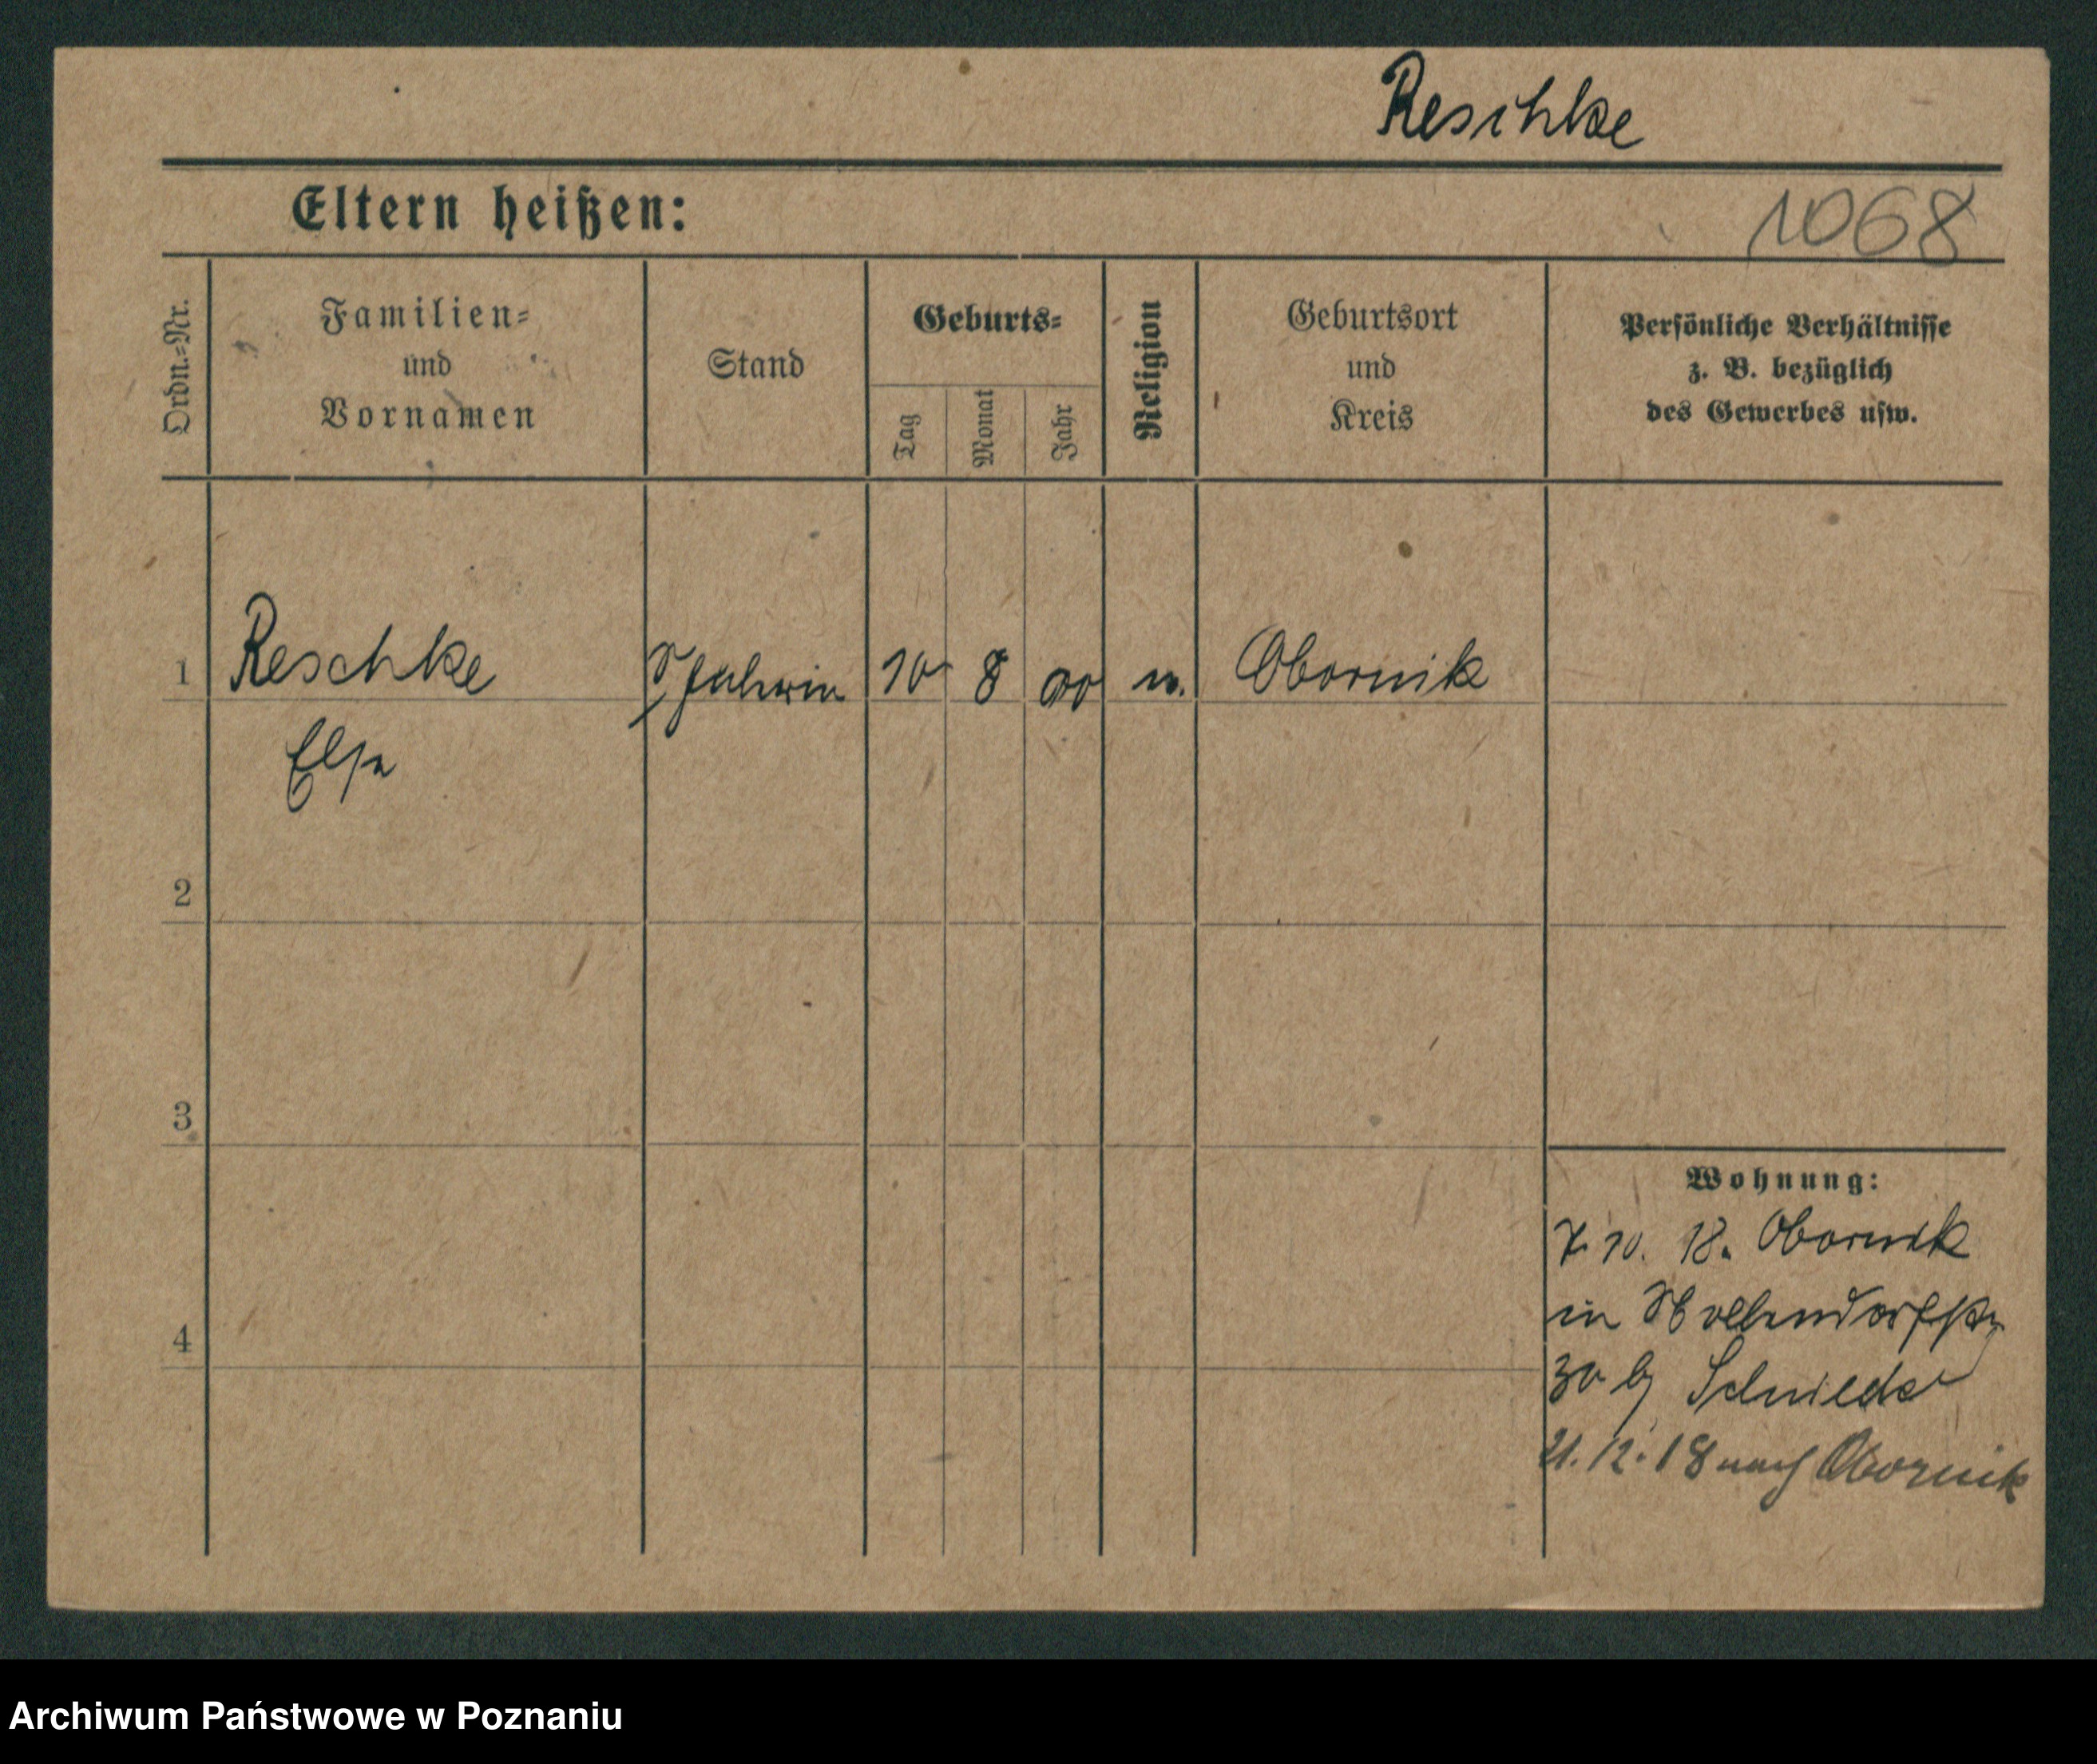 Reschke
Eltern heißen:
1068
Ordn.=Nr.
Familien=
und
Vornamen
Stand
Geburts=
Tag
Monat
Jahr
Religion
Geburtsort
und
Kreis
Persönliche Verhältnisse
z. B. bezüglich
des Gewerbes usw.
1 Reschke 10 8 00 Obornik
Else
2
3
4
Wohnung:
7. 10. 18. Obornik
in
30 b
21. 12. 18 nach Obornik
Archiwum Państwowe w Poznaniu